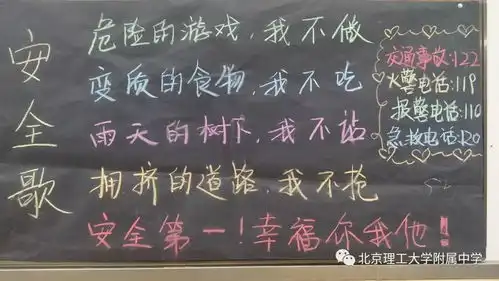 安全歌
危险的游戏,我不做
变质的食物,我不吃
雨天的树下,我不站
拥挤的道路,我不抢
安全第一!幸福你我他!
交通事故:122
火警电话:119
报警电话:110
急救电话:120
北京理工大学附属中学